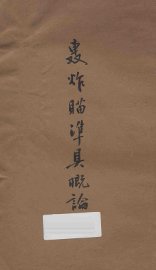 轰炸瞄準具概論